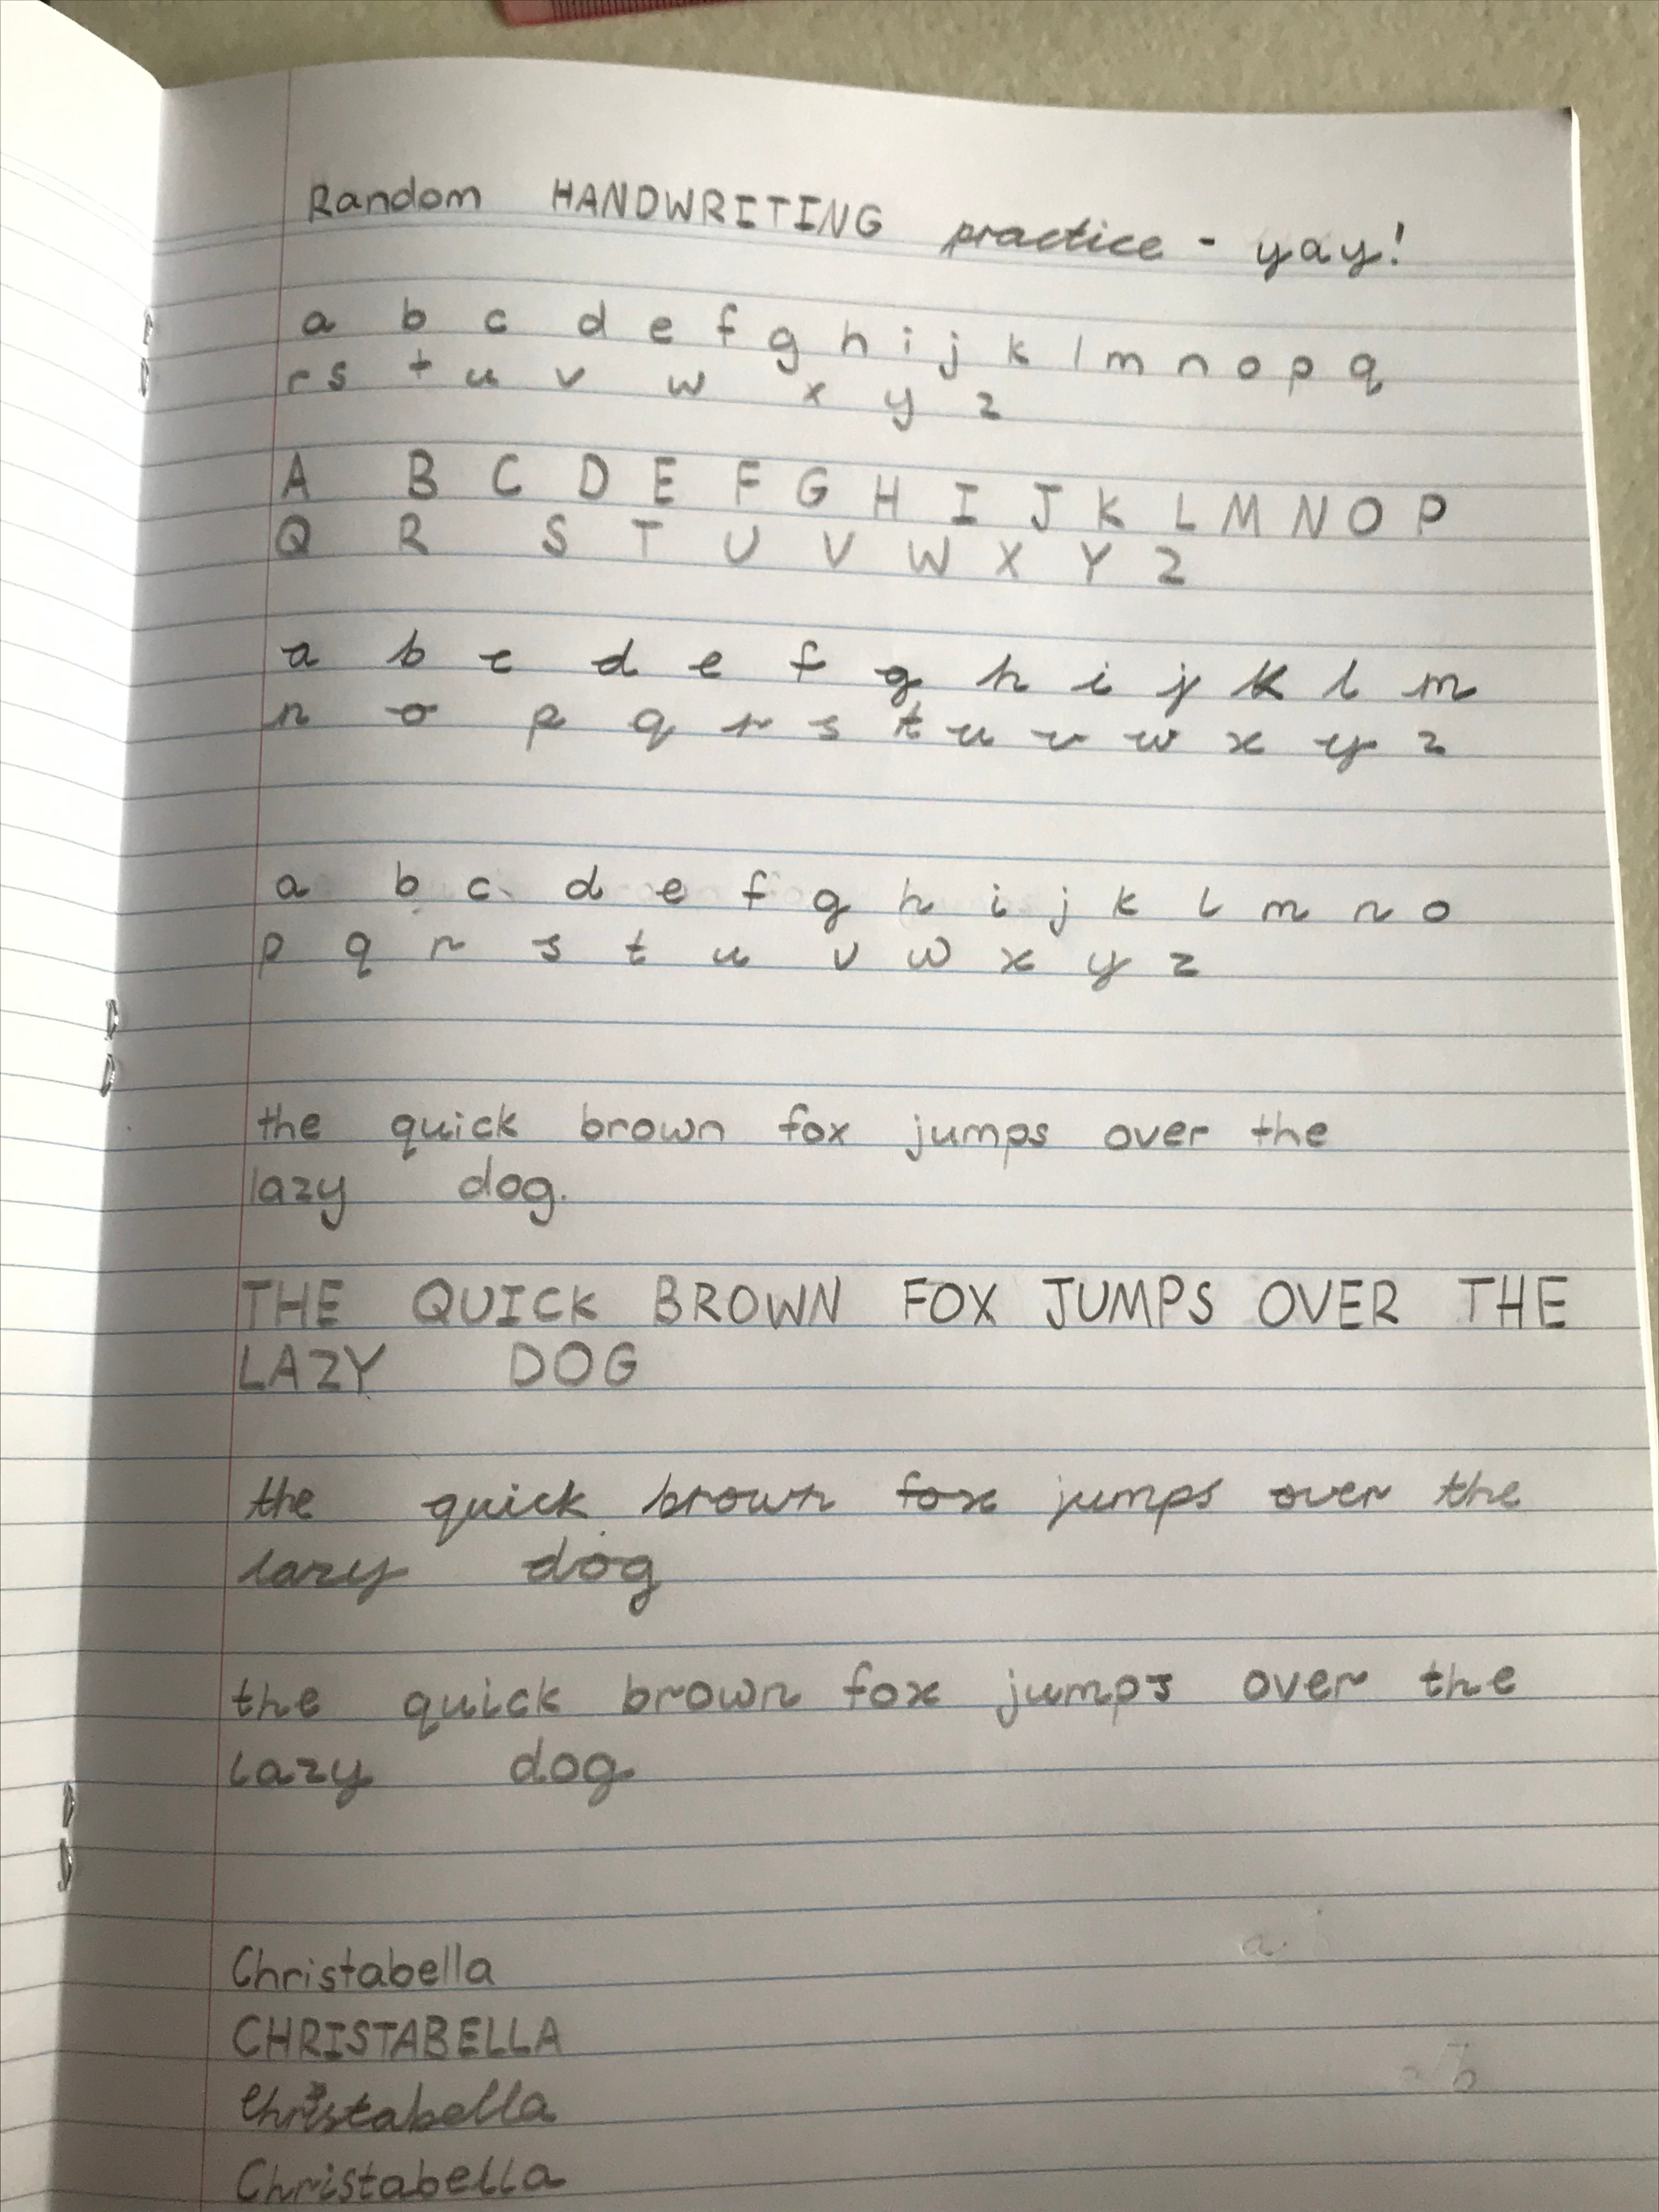 Random HANDWRITING practice - yay!
a b c d e f g h i j k l m n o p q
r s t u v w x y z
A B C D E F G H I J K L M N O P
Q R S T U V W X Y Z
a b c d e f g h i j k l m
n o p q r s t u v w x y z
a b c d e f g h i j k l m n o
p q r s t u v w x y z
the quick brown fox jumps over the
lazy dog.
THE QUICK BROWN FOX JUMPS OVER THE
LAZY DOG
the quick brown fox jumps over the
lazy dog
the quick brown fox jumps over the
lazy dog
Christabella
CHRISTABELLA
Christabella
Christabella